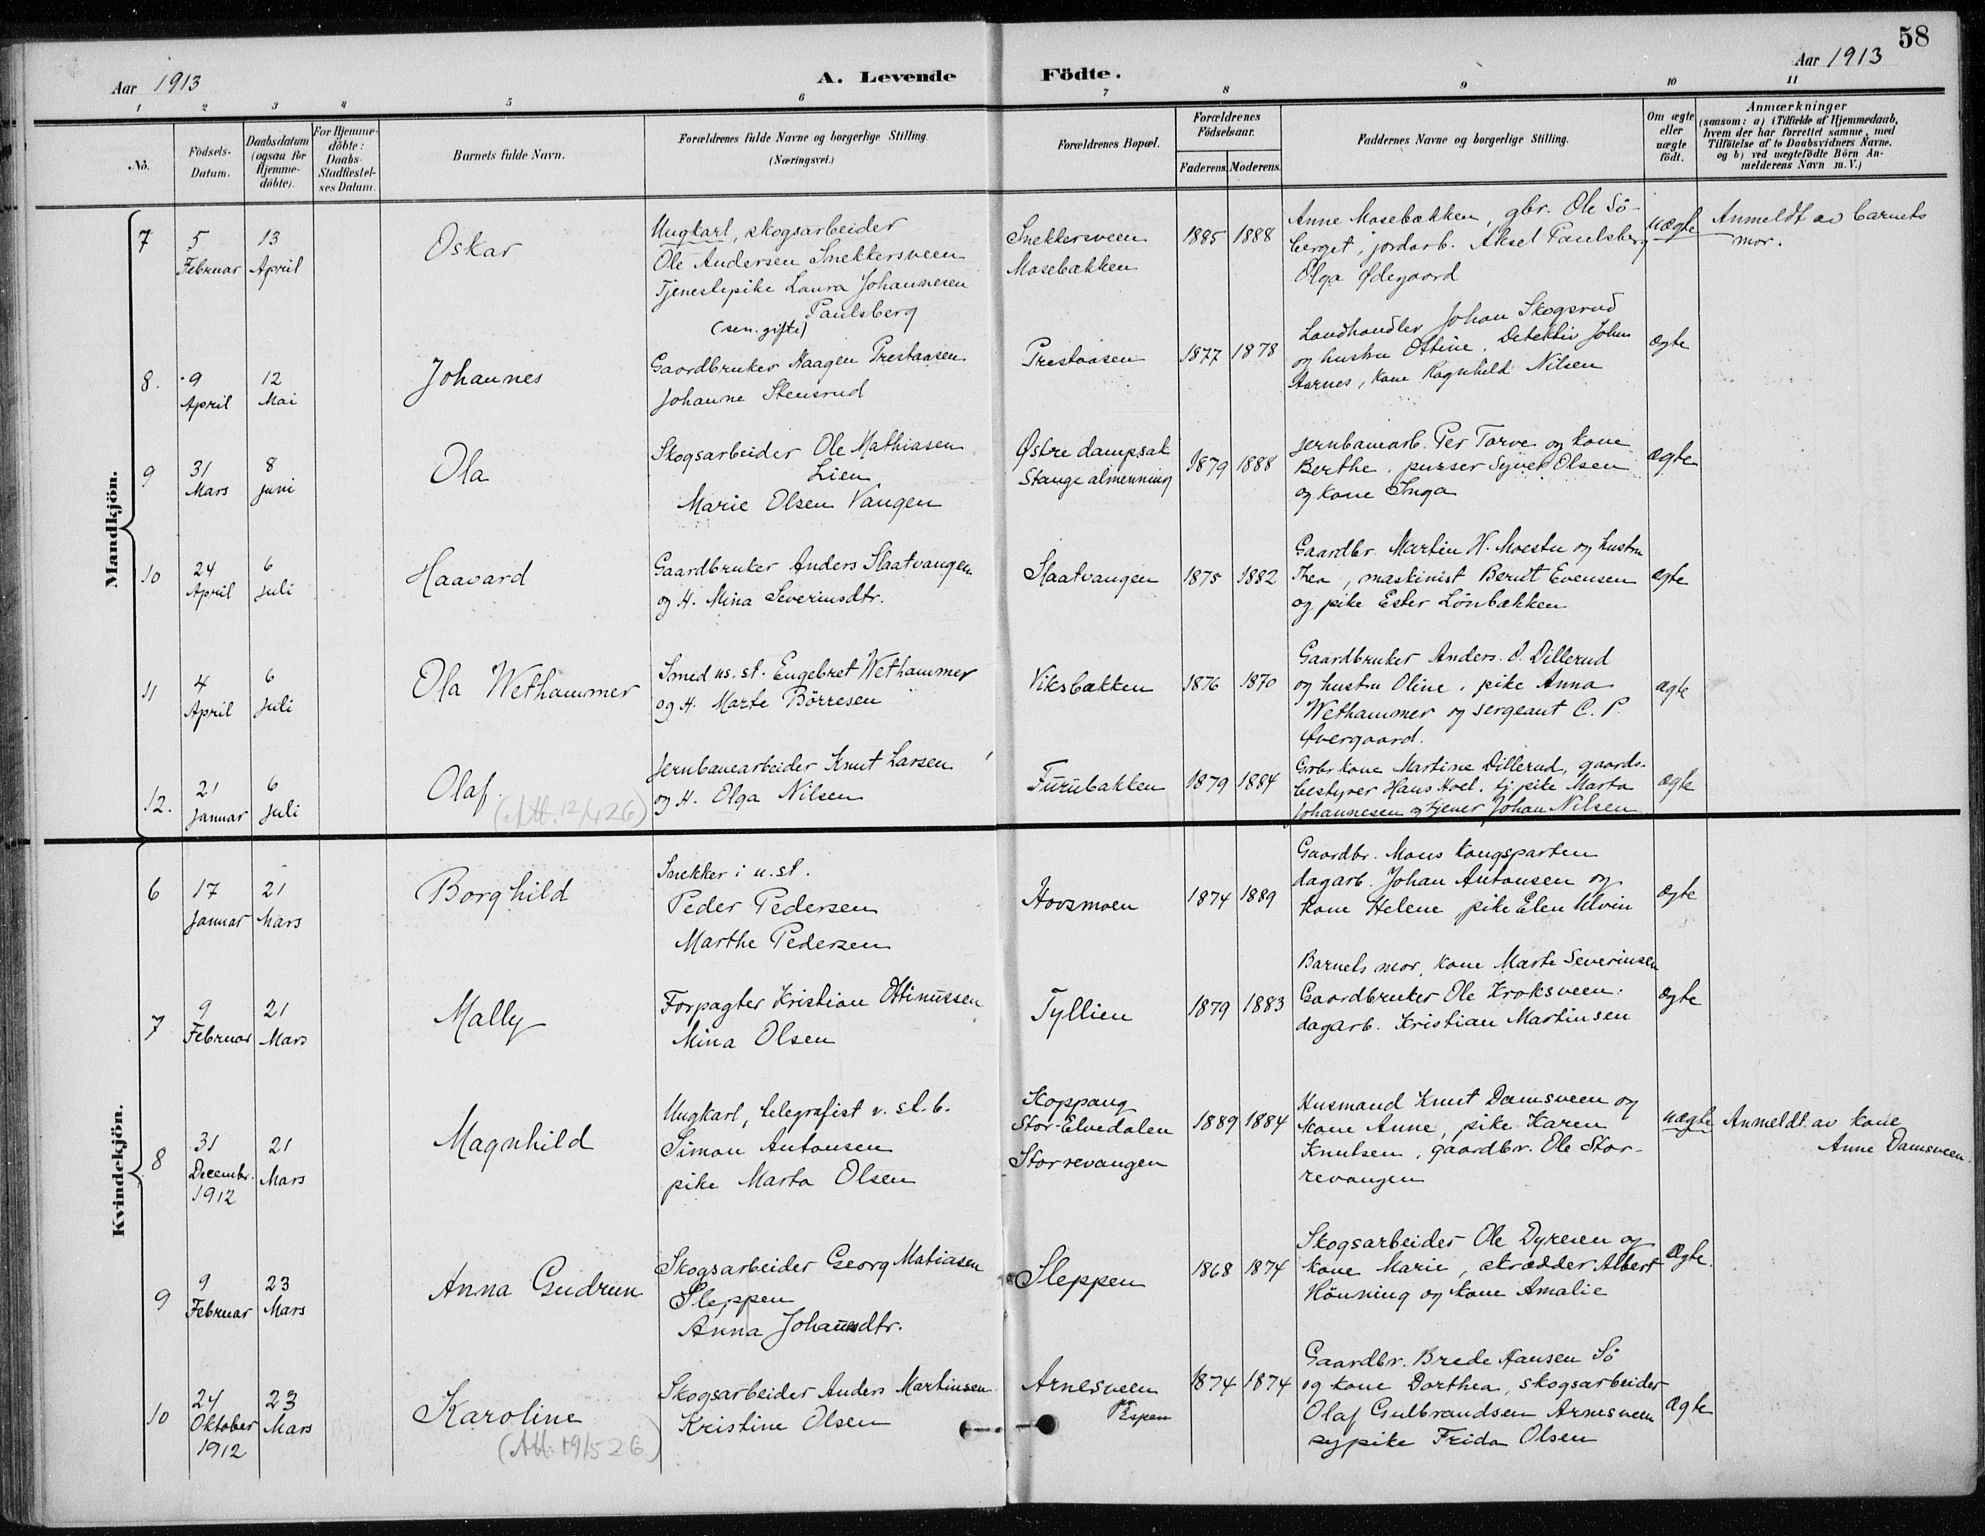 58
Aar 1913
A. Levende Födte.
Aar 1913
1 2 3 4 5 6 7 8 9 10 11
No.
Födsels-Datum.
Daabsdatum (ogsaa for Hjemme-döbte).
For Hjemme-döbte: Daabs-Stadfæstel-ses Datum.
Barnets fulde Navn.
Forældrenes fulde Navne og borgerlige Stilling. (Næringsvei.)
Forældrenes Bopæl.
Forældrenes Födselsaar.
Faderens. Moderens.
Faddernes Navne og borgerlige Stilling.
Om ægte eller uægte født.
Anmærkninger
(saasom: a) i Tilfælde af Hjemmedaab,
hvem der har forrettet samme, med
Tilföielse af to Daabsvidners Navne.
og b) ved uægtefödte Börn An-
melderens Navn m. V.)
Mandkjön.
7
5 Februar
13 April
Oskar
Ungkarl, skogsarbeider
Ole Andersen Snekkersveen
Tjenestepike Laura Johannesen
Paulsberg
(sen. gifte)
Snekkersveen
Mosebækken
1885 1888
Anne Mosebækken, gbr. Ole Sö-
berget, jordarb. Aksel Paulsberg
Olga Ødegaard
uægte
Anmeldt av barnets
mor.
8.
9 April
12 Mai
Johannes
Gaardbruker Haagen Prestaasen
Johanne Stensrud
Prestaasen
1877 1878
Landhandler Johan Skogsrud
og hustru Ottine. Detektiv Johan
Aarnes, kone Ragnhild Nilsen
ægte
9
31 Mars
8 juni
Ola
Skogsarbeider Ole Mathiasen
Lien
Marie Olsen Vangen
Østre dampsak
Stange almenning
1879 1888
Jernbanearb. Per Torve og kone
Berthe. purser Syver Olsen
og kone Inga
ægte
10
24 April
6 juli
Haavard
Gaardbruker Anders Slaatvangen
og H. Mina Severinsdtr.
Slaatvangen
1875 1882
Gaardbr. Martin H. Moestu og hustru
Thea, maskinist Bernt Evensen
og pike Ester Lönbækken
ægte
11
4 April
6 juli
Ola Wethammer
Smed us. st. Engebret Wethammer
og H. Marte Börresen
Viksbækken
1876 1870
Gaardbruker Anders O. Dillerud
og hustru Oline. pike Anna
Wethammer og sergeant C. P.
Overgaard.
ægte
12.
21 Januar
6 juli
Olaf.
(Att. 12/4 26)
Jernbanearbeider Knut Larsen
og H. Olga Nilsen
Furubakken
1879 1884
Gbr. kone Martine Dillerud, gaards-
bestyrer Hans Hoel. tj. pike Marta
Johannesen og tjener Johan Nilsen
ægte
Kvindekjön.
6
17 Januar
21 Mars
Borghild
Snekker i u. st.
Peder Pedersen
Marthe Pedersen
Hovsmoen
1874 1889
Gaardbr. Mons Kongsparten
dagarb. Johan Antonsen og
kone Helene pike Elen Ulvin
ægte
7
9 Februar
21 Mars
Mally
Forpagter Kristian Ottinussen
Mina Olsen
Tyllien
1879 1883
Barnets mor, kone Marte Severinsen
Gaardbruker Ole Kroksveen.
dagarb. Kristian Martinsen
ægte
8
31 Decembr. 1912
21 Mars
Magnhild
Ungkarl, telegrafist v. st. b.
Simon Antonsen
pike Marta Olsen
Koppang
Stor-Elvedalen
Storrevangen
1889 1884
Husmand Knut Damsveen og
kone Anne, pike Karen
Knutsen, gaardbr. Ole Stor-
revangen
uægte
Anmeldt av kone
Anne Damsveen.
9
9 Februar
23 Mars
Anna Gudrun
Skogsarbeider Georg Matiasen
Sleppen
Anna Johansdtr.
Sleppen
1868 1874
Skogsarbeider Ole Dyreien og
kone Marie, skrædder Albert
Hönning og kone Amalie
ægte.
10
24 Oktober 1912
23 Mars
Karoline
(Att. 19/5 26)
Skogsarbeider Anders Martinsen
Kristine Olsen
Arnesveen
pr Espen
1874 1874
Gaardbr. Brede Hansen Sö
og kone Dorthea, skogsarbeider
Olaf Gulbrandsen Arnesveen
sypike Frida Olsen
ægte